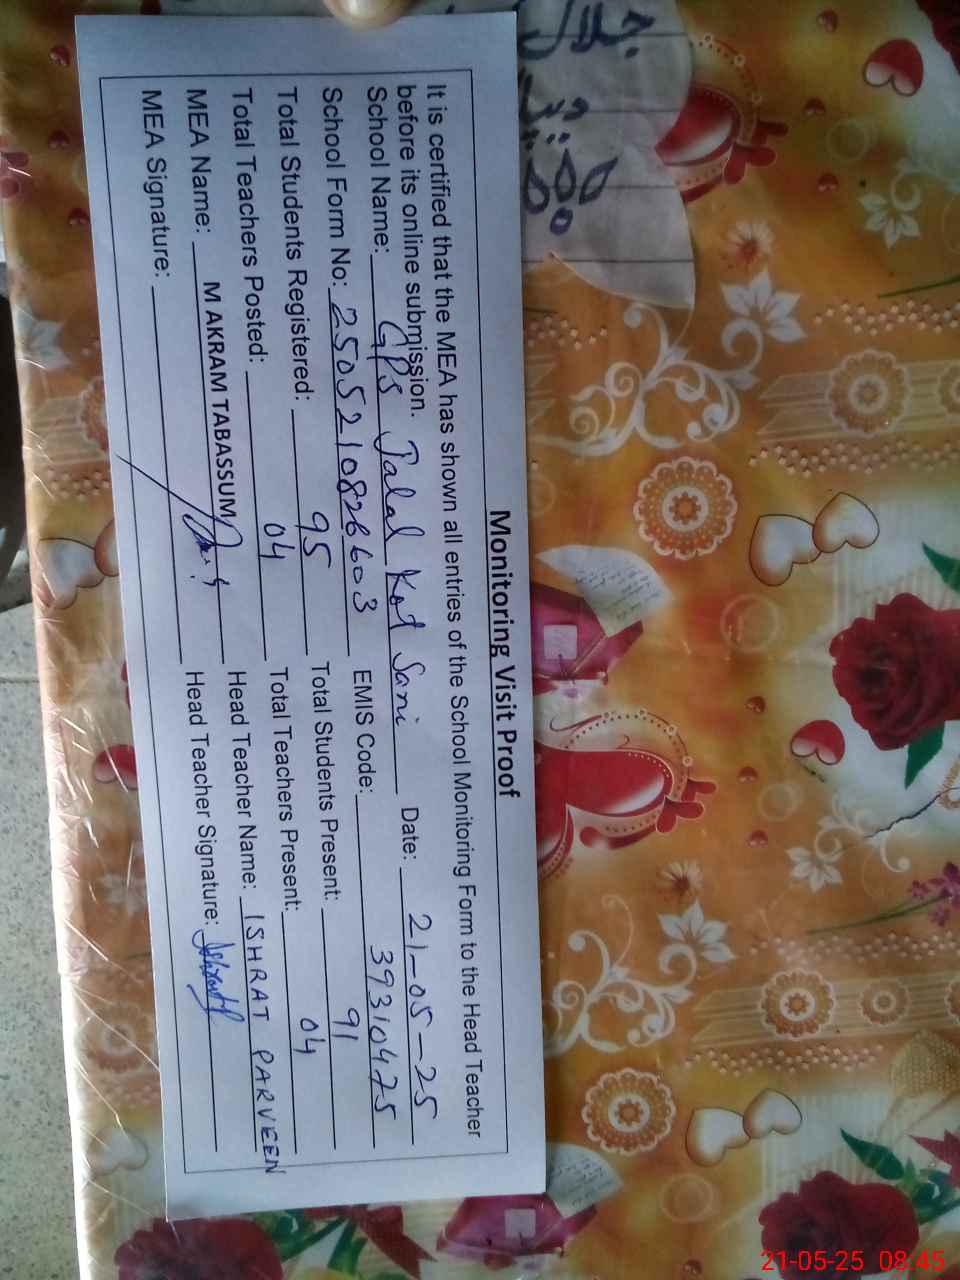 Monitoring Visit Proof
It is certified that the MEA has shown all entries of the School Monitoring Form to the Head Teacher
before its online submission.
School Name: GPS Jalal Kot Sani Date: 21-05-25
School Form No: 2505210826603 EMIS Code: 39310475
Total Students Registered: 95 Total Students Present: 91
Total Teachers Posted: 04 Total Teachers Present: 04
MEA Name: M AKRAM TABASSUM Head Teacher Name: ISHRAT PARVEEN
MEA Signature: Head Teacher Signature: Ishrat P
جلال
21-05-25 08:45